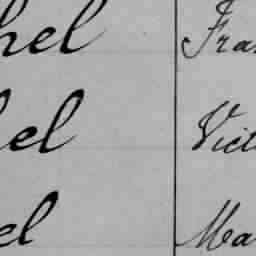 hel Fra
el Vict
el Ma